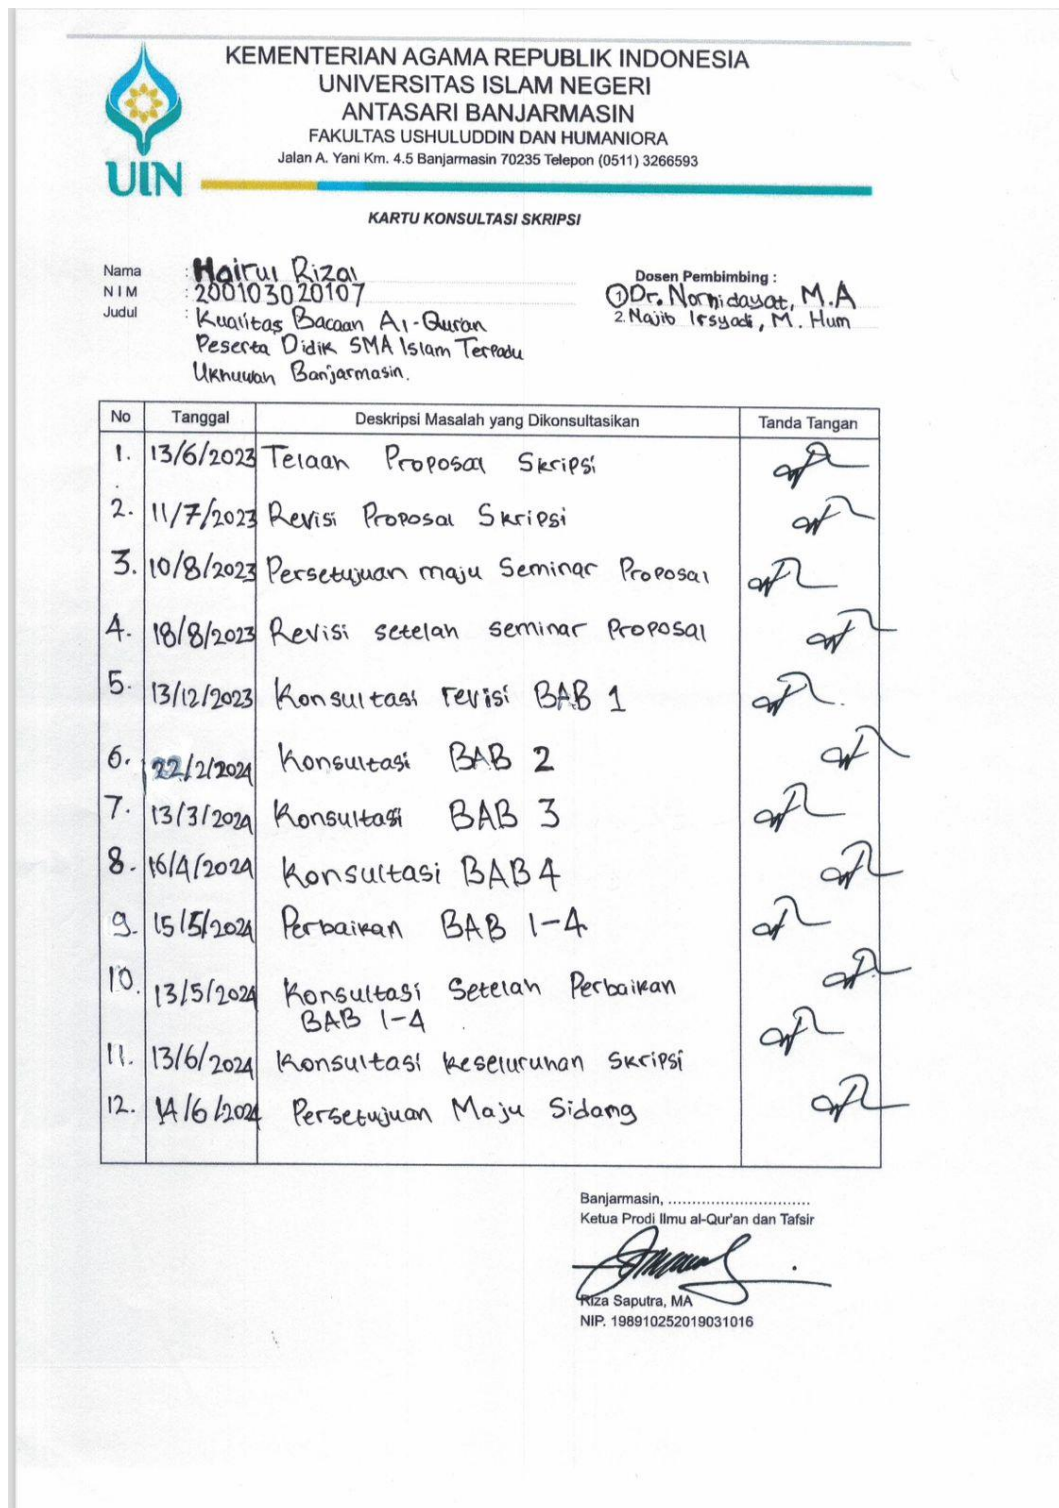 KEMENTERIAN AGAMA REPUBLIK INDONESIA
UNIVERSITAS ISLAM NEGERI
ANTASARI BANJARMASIN
FAKULTAS USHULUDDIN DAN HUMANIORA
Jalan A. Yani Km. 4.5 Banjarmasin 70235 Telepon (0511) 3266593
UIN
KARTU KONSULTASI SKRIPSI
Nama : Hairul Rizal
N I M : 200103020107
Judul : Kualitas Bacaan Al-Quran
Peserta Didik SMA Islam Terpadu
Ukhuwah Banjarmasin.
Dosen Pembimbing :
1 Dr. Norhidayat, M.A
2. Najib Irsyadi, M. Hum
No Tanggal Deskripsi Masalah yang Dikonsultasikan Tanda Tangan
1. 13/6/2023 Telaah Proposal Skripsi
2. 11/7/2023 Revisi Proposal Skripsi
3. 10/8/2023 Persetujuan maju Seminar Proposal
4. 18/8/2023 Revisi setelah seminar Proposal
5. 13/12/2023 Konsultasi revisi BAB 1
6. 22/2/2024 Konsultasi BAB 2
7. 13/3/2024 Konsultasi BAB 3
8. 16/4/2024 Konsultasi BAB 4
9. 15/5/2024 Perbaikan BAB 1-4
10. 13/5/2024 Konsultasi Setelah Perbaikan
BAB 1-4
11. 13/6/2024 Konsultasi keseluruhan Skripsi
12. 14/6/2024 Persetujuan Maju Sidang
Banjarmasin, ..............................
Ketua Prodi Ilmu al-Qur'an dan Tafsir
Riza Saputra, MA
NIP. 198910252019031016